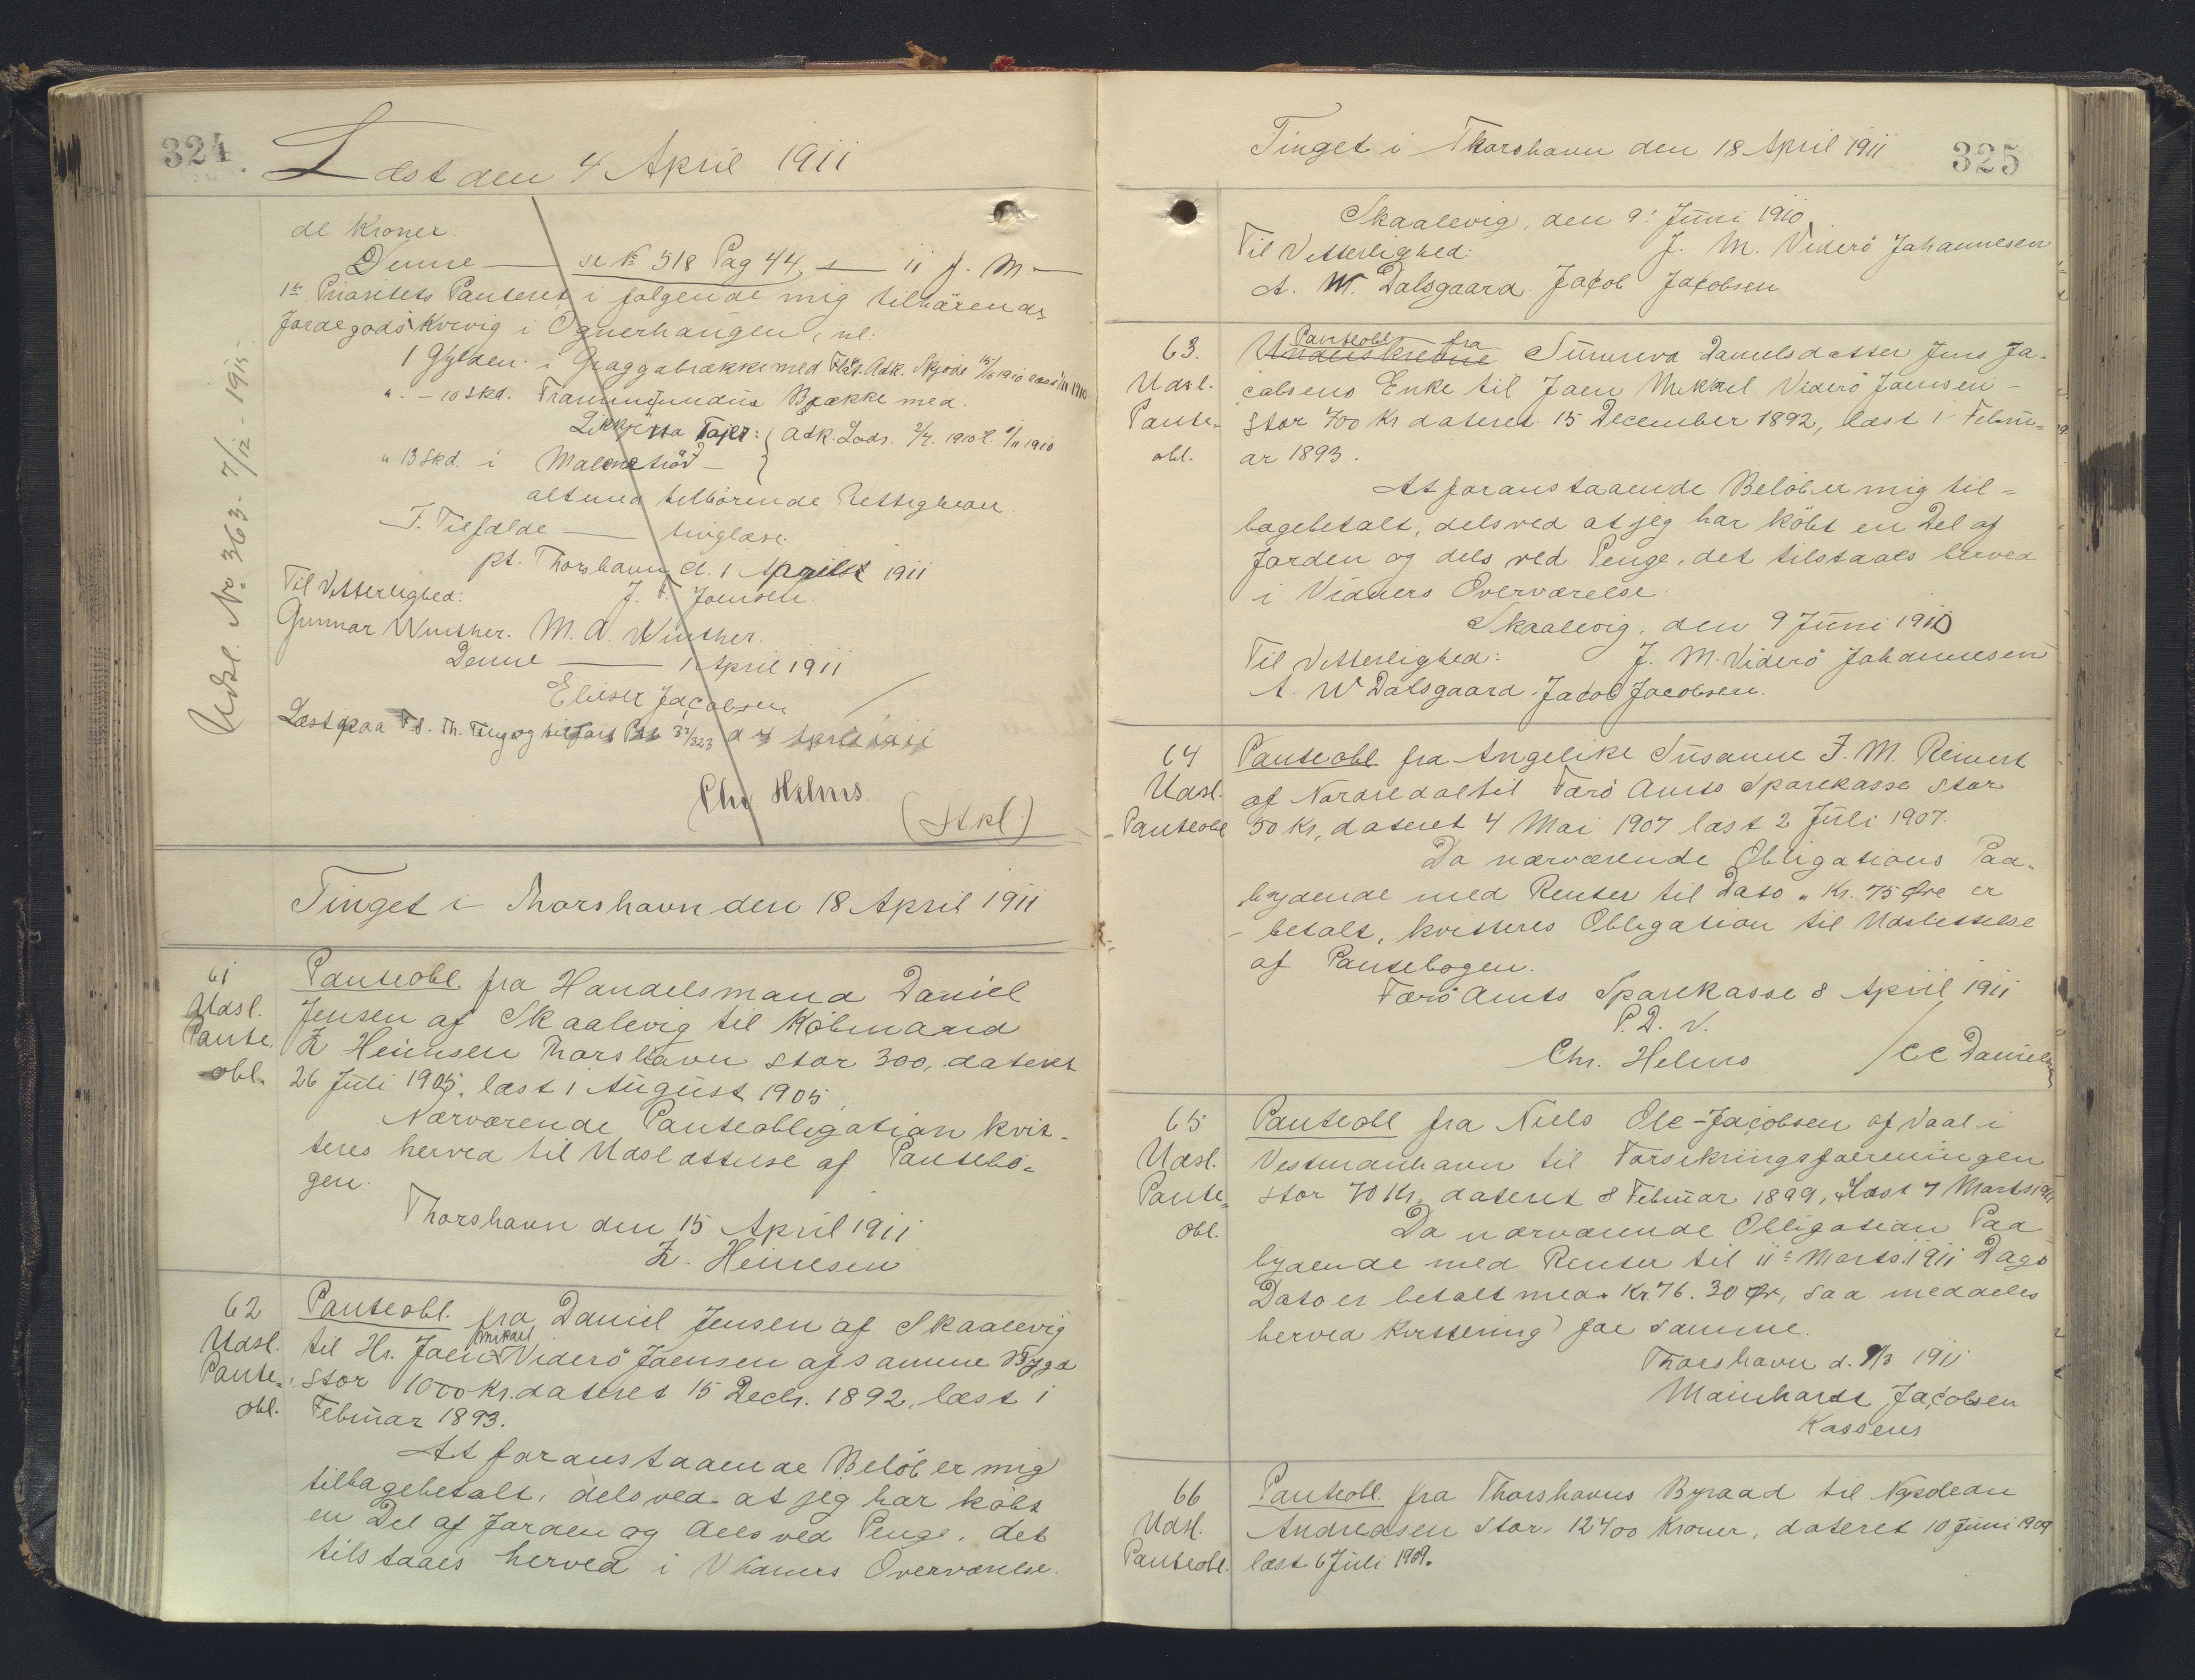 324.
Læst den 4 April 1911
de Kroner.
Denne — se № 518 Pag 44, — 11 f. M —
1ste Prioritets Panteret i følgende mig tilhörende
Jordegods Kvivig i Ognerhaugen, nl:
1 Gylden i Graggabrække med Adk. Skjöde 15/6 1910 læst
" - 10 Skd. Brække med.
Adk. Lods. 2/7. 1910 l. 1/11 1910
" 13 Skd. i
alt med tilhörende Rettigheder.
I Tilfælde — tinglæse.
pt. Thorshavn d. 1 April 1911
Til Vitterlighed: J. F. Joensen.
Gunnar Winther. M. A. Winther.
Denne — 1 April 1911
Elieser Jacobsen
Læst paa Th. Ting og tilført 37/323 d 4 April 1911
Chr Helms.
(Stpl.)
Udsl. No 363 - 7/12 - 1915.
Tinget i Thorshavn den 18 April 1911
61
Udsl.
Pante
obl.
Panteobl. fra Handelsmand Daniel
Jensen af Skaalevig til Köbmand
Z Heinesen Thorshavn stor 300, dateret
26 Juli 1905, læst 1 August 1905.
Nærværende Panteobligation kvit-
teres herved til Udslættelse af Pantebo-
gen.
Thorshavn den 15 April 1911
Z. Heinesen
62
Udsl.
Pante-
obl.
Panteobl. fra Daniel Jensen af Skaalevig
til Hr. Joen Mikael Viderö Joensen af samme Bygd
stor 1000 Kr. dateret 15 Decbr. 1892, læst 1
Februar 1893.
At foranstaaende Belöb er mig
tilbagebetalt, dels ved at jeg har köbt
en Del af Jorden og dels ved Penge, det
tilstaaes herved i Vidners Overværelse.
Tinget i Thorshavn den 18 April 1911
325
Skaalevig, den 9. Juni 1910.
Til Vitterlighed: J. M. Viderö Johannesen
A. W. Dalsgaard. Jacob Jacobsen
63.
Udsl.
Pante-
obl.
Panteobl fra
Underskrevne Sunneva Danielsdatter Jens Ja-
cobsens Enke til Joen Mikkael Viderö Joensen -
stor 700 Kr dateret 15 December 1892, læst 1 Febru-
ar 1893.
At foranstaaende Belöb er mig til-
bagebetalt, dels ved at jeg har köbt en Del af
Jorden og dels ved Penge, det tilstaaes herved
i Vidners Overværelse.
Skaalevig, den 9 Juni 1910
Til Vitterlighed: J. M. Viderö Johannesen
A. W Dalsgaard. Jacob Jacobsen.
64
Udsl.
Panteobl
Panteobl fra Angelike Susanne J. M. Reinert
af Nordredal til Færö Amts Sparekasse stor
50 Kr, dateret 4 Mai 1907 læst 2 Juli 1907.
Da nærværende Obligations Paa-
lydende med Renter til Dato " Kr. 75 Øre er
betalt, kvitteres Obligation til Udslettelse
af Pantebogen.
Færö Amts Sparekasse 8 April 1911
P. D. V.
Chr. Helms / C C Danielsen
65
Udsl.
Pante-
obl.
Panteobl fra Niels Ole Jacobsen af Vaal i
Vestmanhavn til Forsikringsforeningen
stor 70 Kr. dateret 8 Februar 1899, Læst 7 Marts
Da nærværende Obligation Paa
lydende med Renter til 11te Marts 1911 Dags
Dato er betalt med Kr. 76. 30 Øre, saa meddeles
herved Kvittering for samme.
Thorshavn d. 9/3 1911
Mainhardt Jacobsen
Kasserer
66
Udsl.
Panteobl.
Panteobl. fra Thorshavns Byraad til Napolean
Andreasen stor 12400 Kroner, dateret 10 Juni 1909
læst 6 Juli 1909.